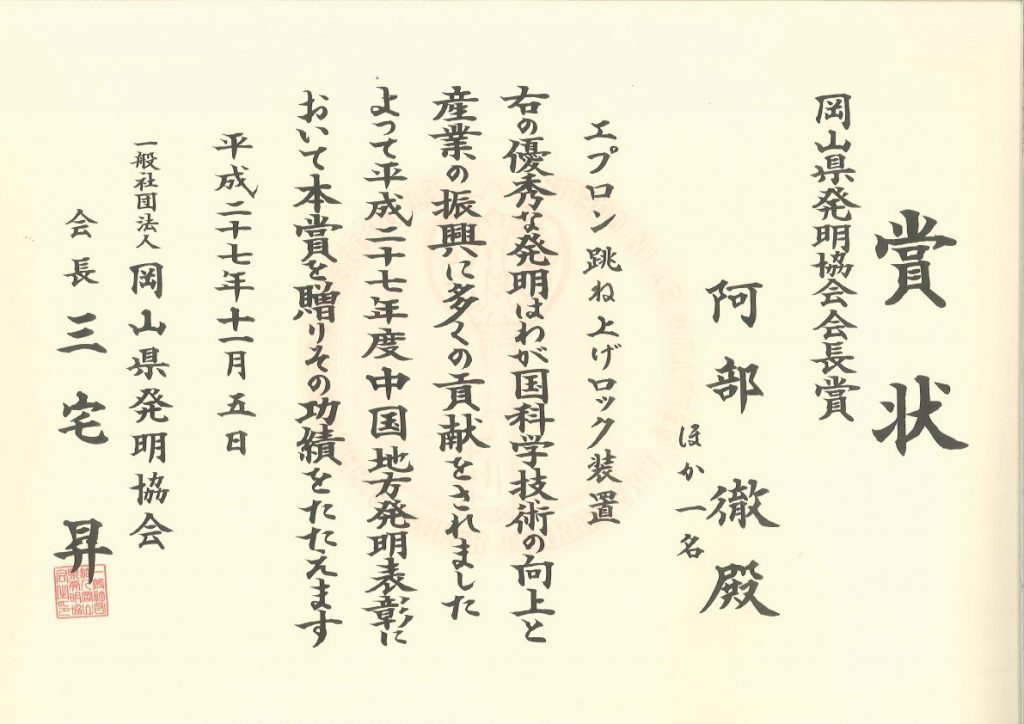 賞状
岡山県発明協会会長賞
阿部徹殿
ほか一名
エプロン跳ね上げロック装置
右の優秀な発明はわが国科学技術の向上と
産業の振興に多くの貢献をされました
よって平成二十七年度中国地方発明表彰に
おいて本賞を贈りその功績をたたえます
平成二十七年十一月五日
一般社団法人岡山県発明協会
会長三宅昇